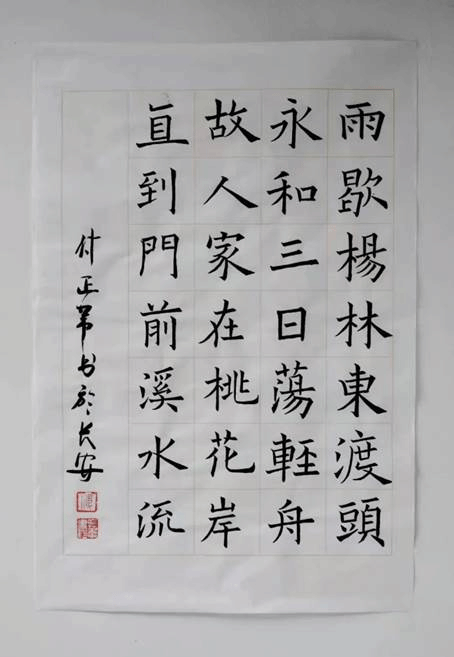 雨歇楊林東渡頭
永和三日蕩軽舟
故人家在桃花岸
直到門前溪水流
付正书於长安